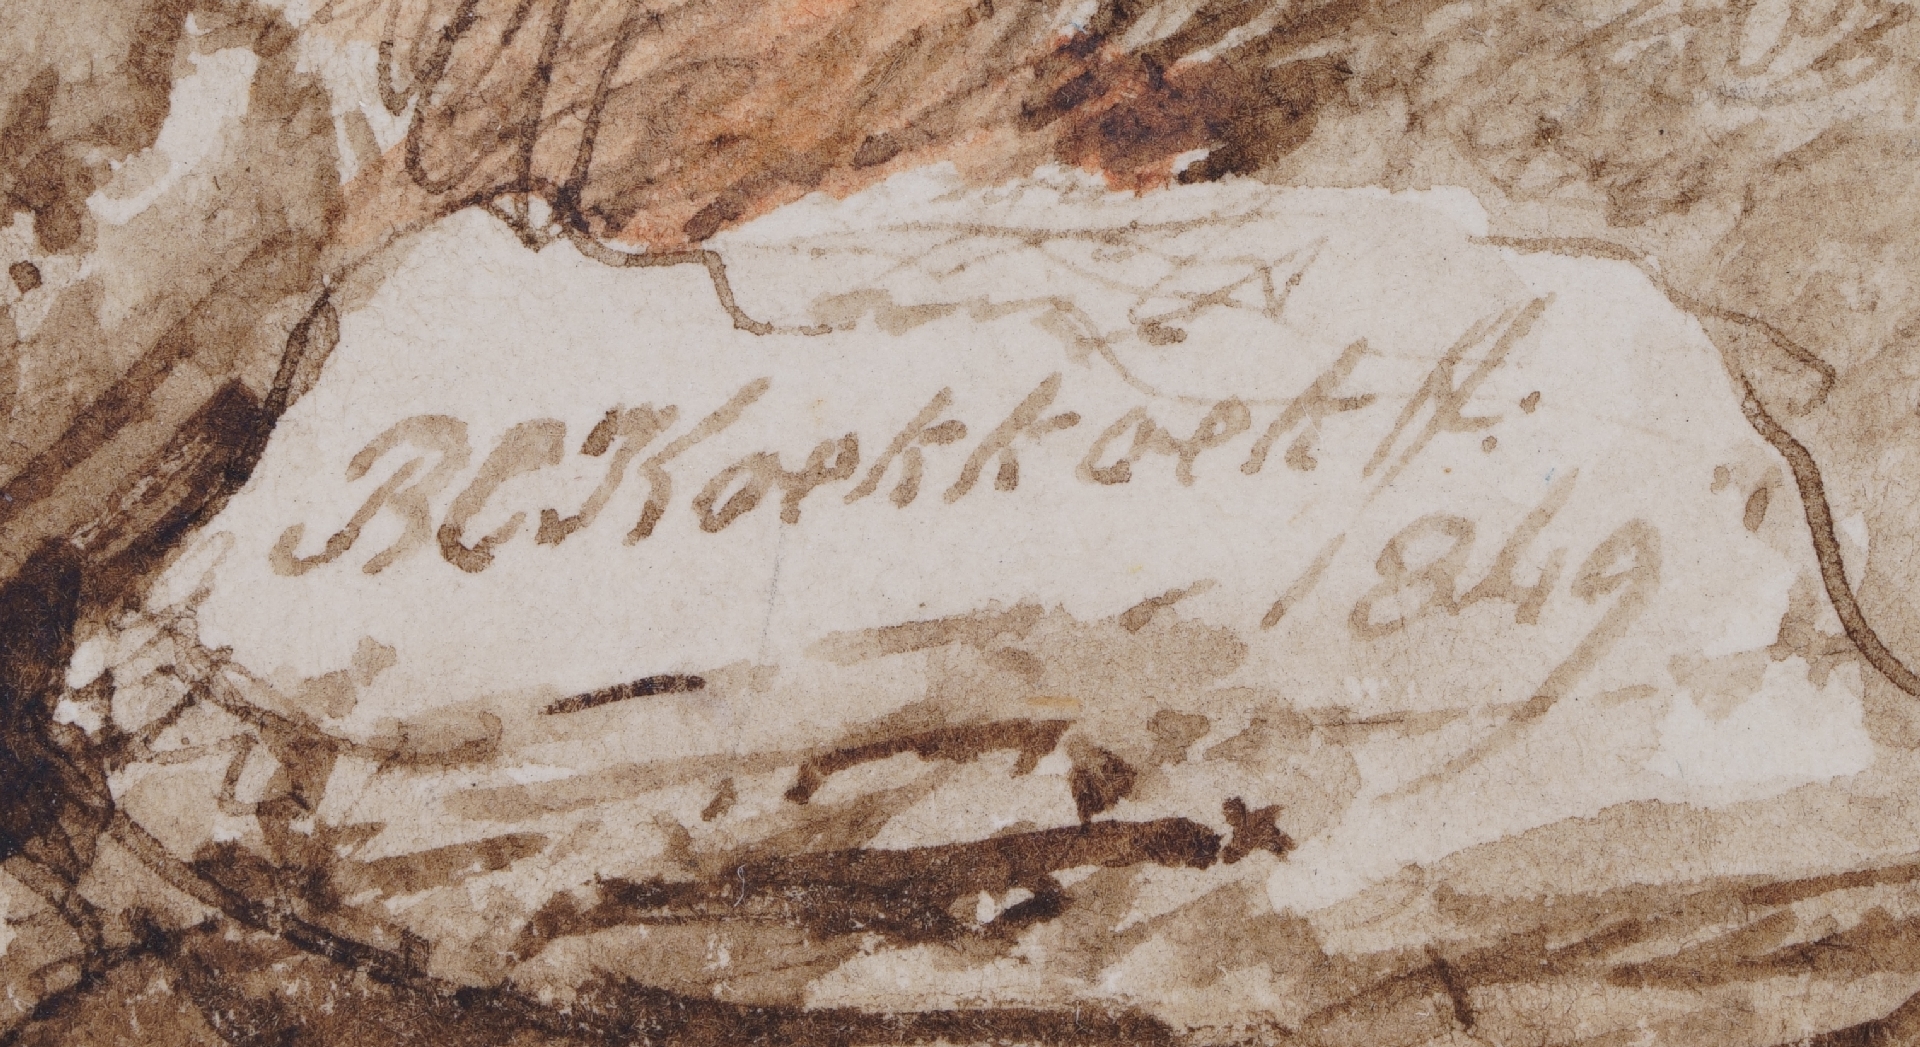 BC Koekkoek ff.
1849